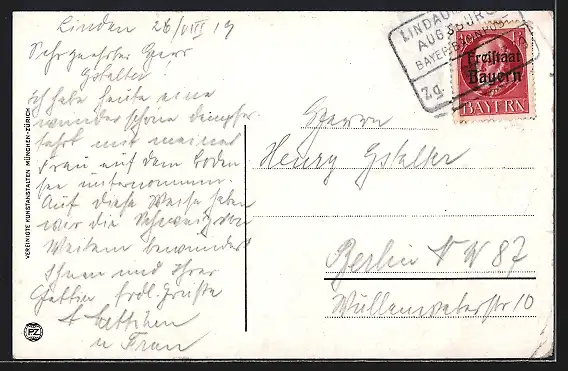 Lindau 26/VIII 19
Sehr geehrter Herr
Gstalter!
ich habe heute eine
wunderschöne Dampfer
fahrt mit meiner
Frau auf dem Boden
see unternommen.
Auf diese Weise haben
wir die Schweiz von
Weitem bewundert
Ihnen und Ihrer
Gattin frdl. Grüße
u Frau
VEREINIGTE KUNSTANSTALTEN MÜNCHEN-ZÜRICH
PZ
LINDAU
AUGSBURG
BAYER. BAHNPOST
Zg.
Freistaat
Bayern
BAYERN
Herrn
Henry Gstalter
Berlin N W 87
Wullenweberstr 10